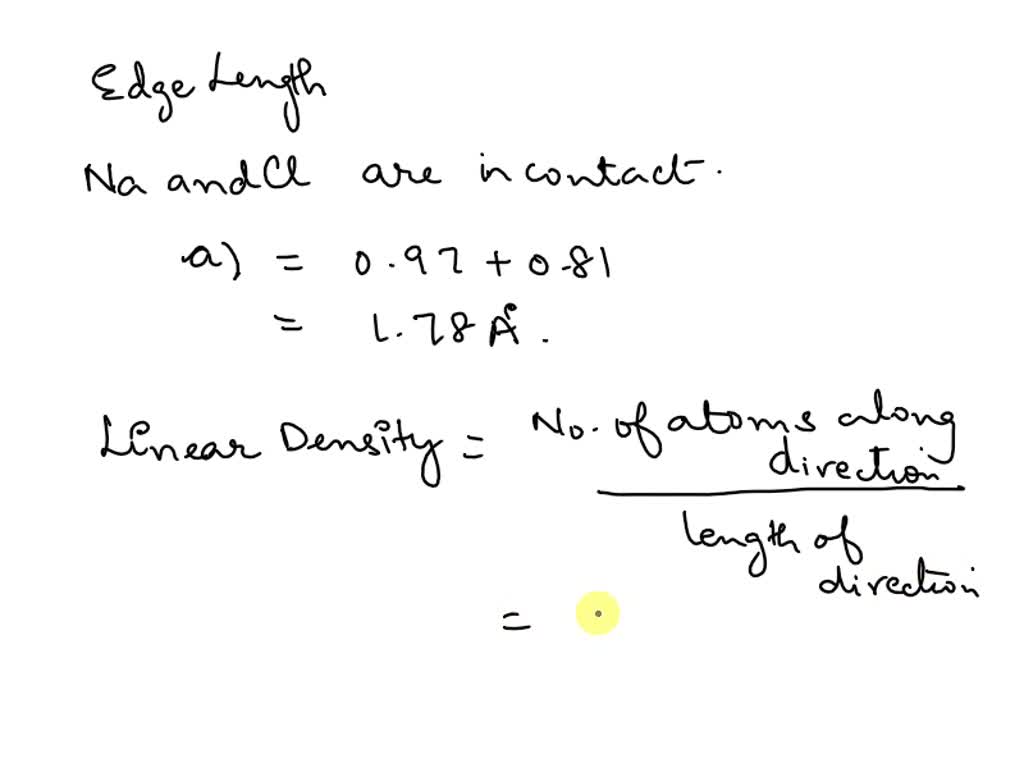 Edge Length
Na and Cl are in contact.
a) = 0.97 + 0.81
= 1.78 Å.
Linear Density = No. of atoms along
direction
length of
direction
=